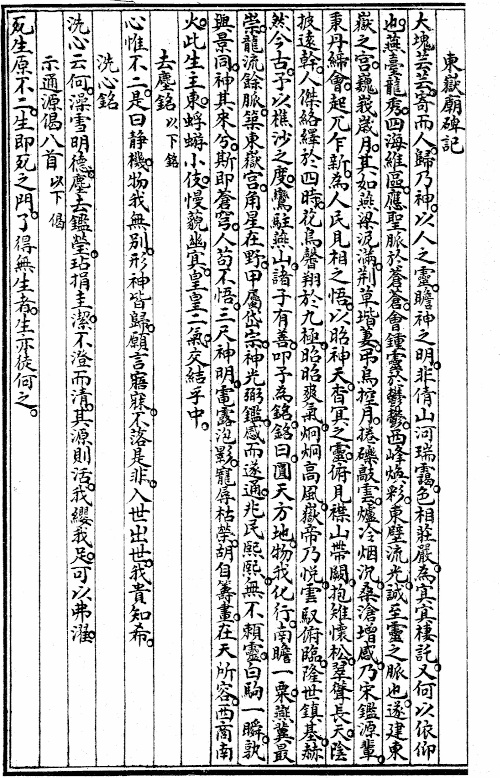 東嶽廟碑記
大塊芸芸寄而人歸乃神以人之靈瞻神之明非倩山河瑞靄色相莊嚴為冥冥棲託又何以依仰
也燕臺龍秀四海維區應聖脈於蒼蒼會鍾靈於鬱鬱西峰煥彩東壁流光誠至靈之脈也遂建東
嶽之宮巍峩歲月其如燕梁泥滿荆草堦萋吊鳥控月捲礫敲雲爐冷烟沉桑滄增感乃宋鑑源輩
秉丹締會起兀乍新為人民見相之悟以昭神天杳冥之靈俯見襟山帶闢抱雉懷松翠聳長天陰
披遠幹人傑絡繹於四時花鳥馨翔於九極昭昭爽氣炯炯高風嶽帝乃悅雲馭俯臨隆世鎮基赫
然今古予以樵沙之度鸞駐燕山諸子有善叩予為銘銘曰圓天方地物我化行南瞻一粟燕冀最
崇龍流餘脈築東嶽宮角星在野甲屬岱宗神光弼鑑感而遂通兆民熙熙無不賴靈白駒一瞬孰
興景同神其來兮斯即蒼穹人苟不悟三尺神明電露泡影寵辱枯榮胡自籌畫在天所容西商南
火此生主東蜉蝣小伎慢藐幽宜皇皇二氣交結乎中
去塵銘 以下銘
心惟不二是曰静機物我無別形神皆歸願言寤寐不落是非入世出世我貴知希
洗心銘
洗心云何澡雪明德塵去鑑瑩玷捐圭潔不澄而清其源則活我纓我足可以弗濯
示通源偈八首 以下偈
死生原不二生即死之門了得無生者生亦從何之